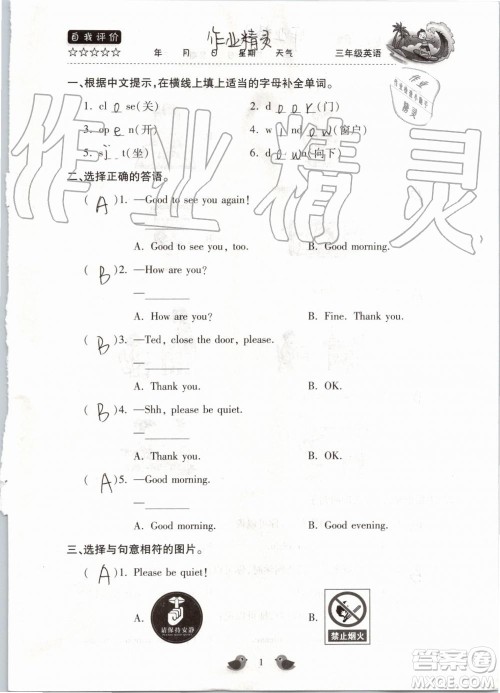 自我评价
☆☆☆☆☆ 年 月 日 星期 天气 作业精灵 三年级英语
一、根据中文提示，在横线上填上适当的字母补全单词。
1. cl o se(关) 2. d o o r (门)
3. op e n(开) 4. w i nd o w(窗户)
5. s i t(坐) 6. d o w n(向下)
二、选择正确的答语。
( A )1. —Good to see you again!
—________
A. Good to see you, too. B. Good morning.
( B )2. —How are you?
—________
A. How are you? B. Fine. Thank you.
( B )3. —Ted, close the door, please.
—________
A. Thank you. B. OK.
( B )4. —Shh, please be quiet.
—________
A. Thank you. B. OK.
( A )5. —Good morning.
—________
A. Good morning. B. Good evening.
三、选择与句意相符的图片。
( A )1. Please be quiet!
A. B.
请保持安静
禁止烟火
1
作业精灵
MXQE.COM